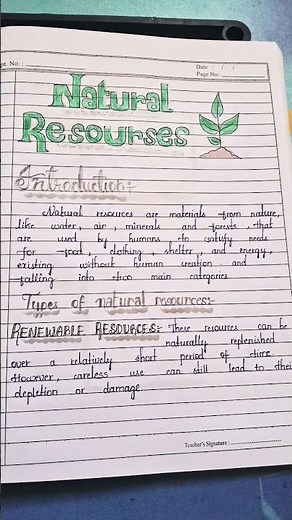 pt. No. :
Date : / /
Page No.
Natural
Resourses
Introduction:-
Natural resources are materials from nature,
like water, air, minerals and forests, that
are used by humans to satisfy needs
for food, clothing, shelter, and energy,
existing without human creation and
falling into two main categories
Types of natural resources:-
RENEWABLE RESOURCES:- These resources can be
naturally replenished
over a relatively short period of time
However, careless use can still lead to their
depletion or damage
Teacher's Signature :